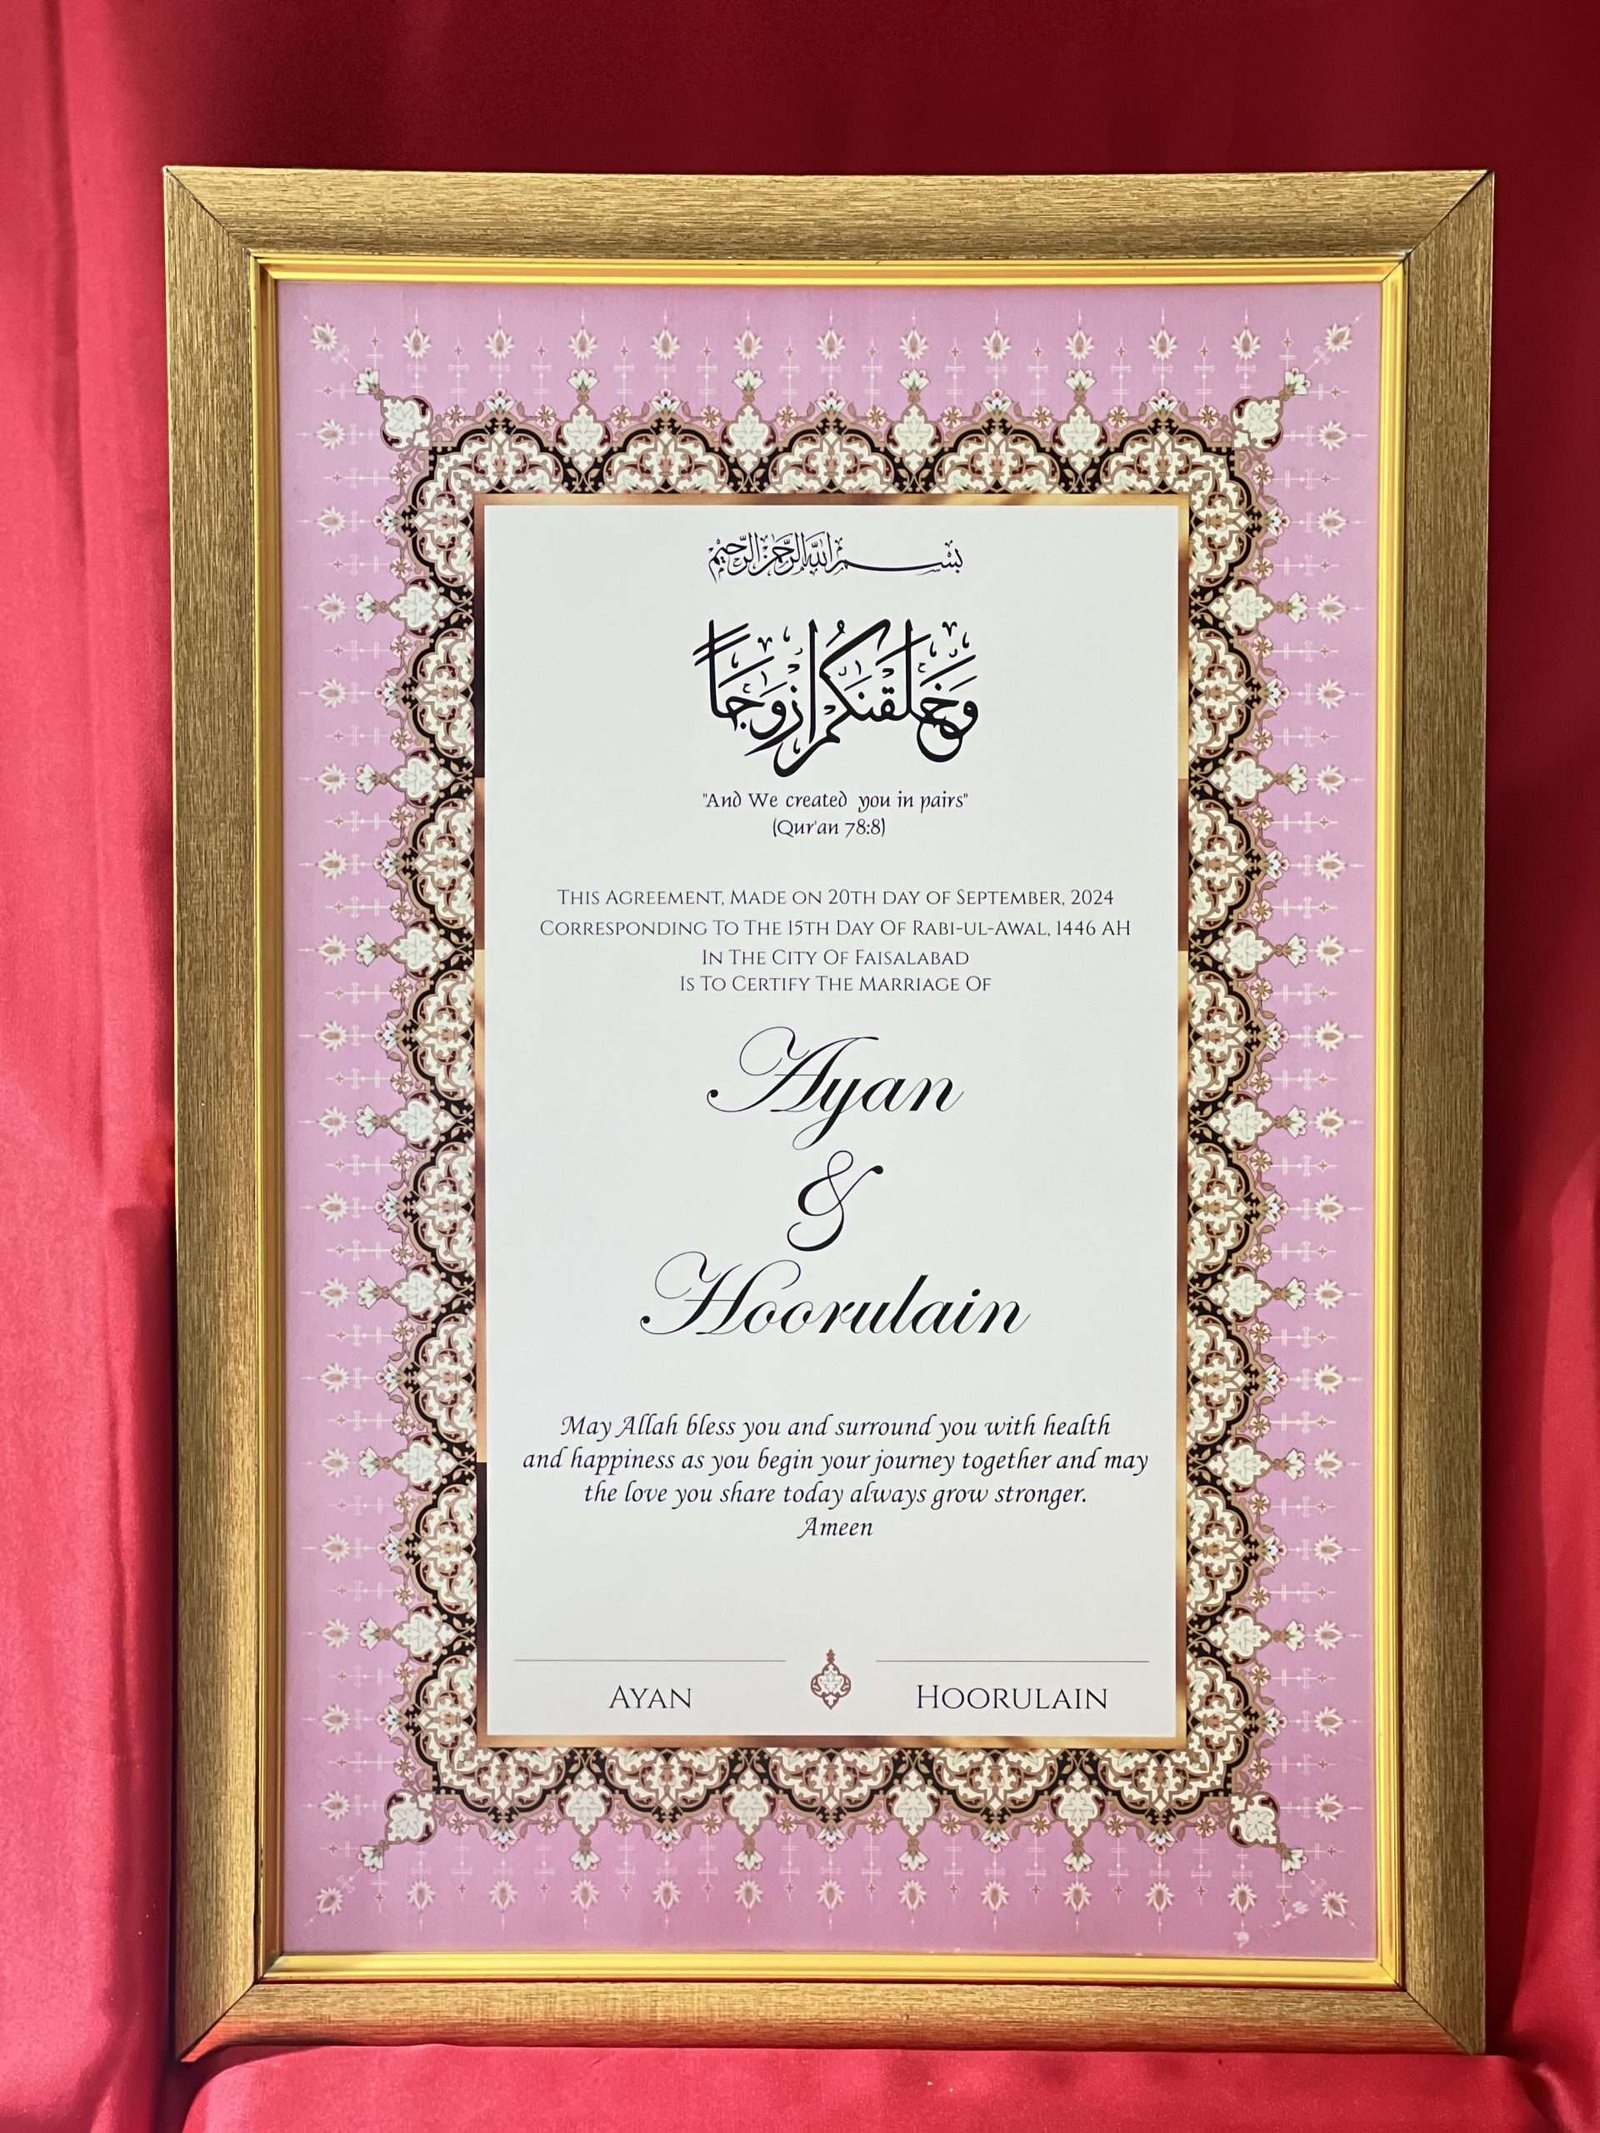 بسم الله الرحمن الرحيم
وَخَلَقْنَكُمْ أَزْوَجًا
"And We created you in pairs"
(Qur'an 78:8)
This Agreement, Made on 20th day of September, 2024
Corresponding To The 15th Day Of Rabi-ul-Awal, 1446 AH
In The City Of Faisalabad
Is To Certify The Marriage Of
Ayan
&
Hoorulain
May Allah bless you and surround you with health
and happiness as you begin your journey together and may
the love you share today always grow stronger.
Ameen
Ayan
Hoorulain